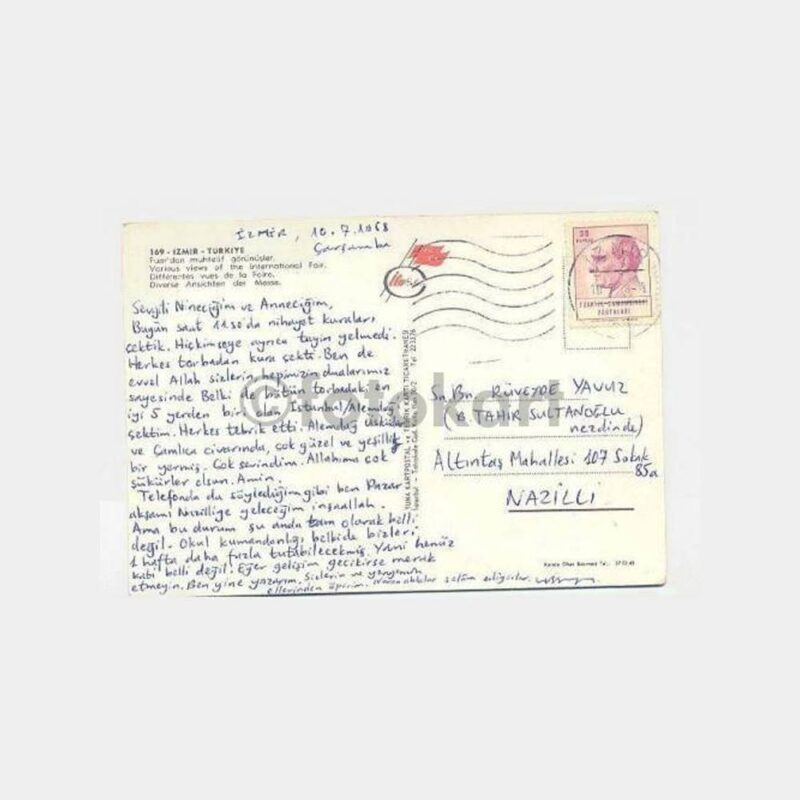 İZMİR, 10.7.1968
Çarşamba
169 - İZMİR - TÜRKİYE
Fuar'dan muhtelif görünüşler.
Various views of the International Fair.
Différentes vues de la Foire.
Diverse Ansichten der Messe.
Sevgili Nineciğim ve Anneciğim,
Bugün saat 11.30'da nihayet kuraları
çektik. Hiçkimseye ayrıca tayin gelmedi.
Herkes torbadan kura çekti. Ben de
evvel Allah sizlerin hepinizin dualarınız
sayesinde Belki de bütün torbadaki en
iyi 5 yerden biri olan İstanbul/Alemdağ
çektim. Herkes tebrik etti. Alemdağ Üsküdar
ve Çamlıca civarında, çok güzel ve yeşillik
bir yermiş. Çok sevindim. Allahıma çok
şükürler olsun. Amin.
Telefonda da söylediğim gibi ben Pazar
akşamı Nazilliye geleceğim inşaallah.
Ama bu durum şu anda tam olarak belli
değil. Okul kumandanlığı belkide bizleri
1 hafta daha fazla tutabilecekmiş. Yani henüz
kati belli değil. Eğer gelişim gecikirse merak
etmeyin. Ben yine yazarım. Sizlerin ve yengemin
ellerinden öperim. selâm ediyorlar.
TUNA KARTPOSTAL ve TEBRİK KARTI TİCARETHANESİ
30
KURUŞ
TÜRKİYE CUMHURİYETİ
POSTALARI
Sn. Bn. RÜVEYDE YAVUZ
TAHİR SULTANOĞLU
nezdinde)
Altıntaş Mahallesi 107 Sokak
85a
NAZİLLİ
©fotokart